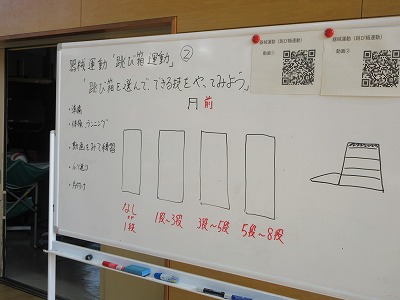 器械運動「跳び箱運動」②
「跳び箱を選んで、できる技をやってみよう」
前
・準備
・体操、ランニング
・動画をみて練習
・ふり返り
・片付け
なし
or
1段
1段～3段
3段～5段
5段～8段
器械運動(跳び箱運動)
動画①
器械運動(跳び箱運動)